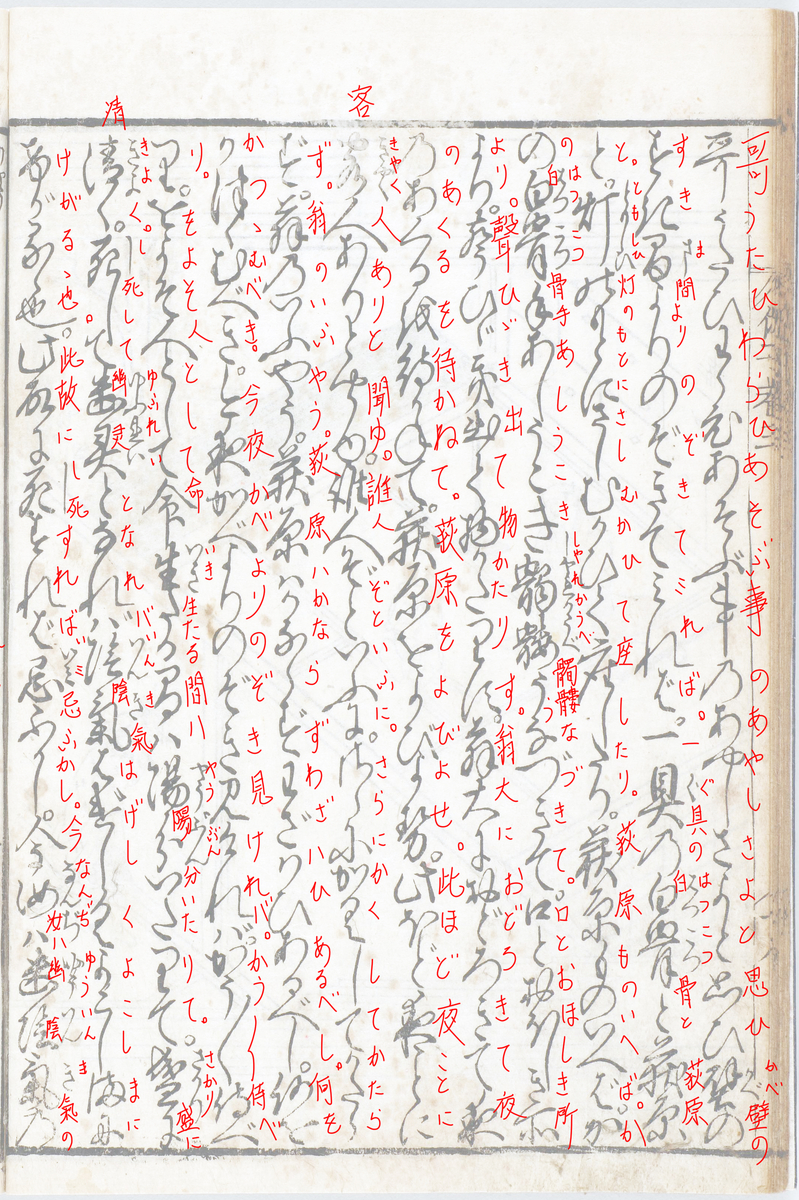 哥うたひわらひあそぶ事のあやしさよと思ひ壁の
すき間よりのぞきてミれば。一具の白骨と荻原
と。灯のもとにさしむかひて座したり。荻原ものいへば。か
の白骨手あしうこき髑髏うなづきて。口とおほしき所
より。聲ひゞき出て物かたりす。翁大におどろきて夜
のあくるを待かねて。荻原をよびよせ。此ほど夜ことに
客人ありと聞ゆ。誰人ぞといふに。さらにかくしてかたら
ず。翁のいふやう。荻原ハかならずわざハひあるべし。何を
かつゝむべき。今夜かべよりのぞき見けれバ。かう〳〵侍べ
り。をよそ人として命生たる間ハ陽分いたりて。盛に
清く。死して幽灵となれバ陰氣はげしくよこしまに
けがるゝ也。此故に死すれば忌ふかし。今汝ハ幽陰氣の